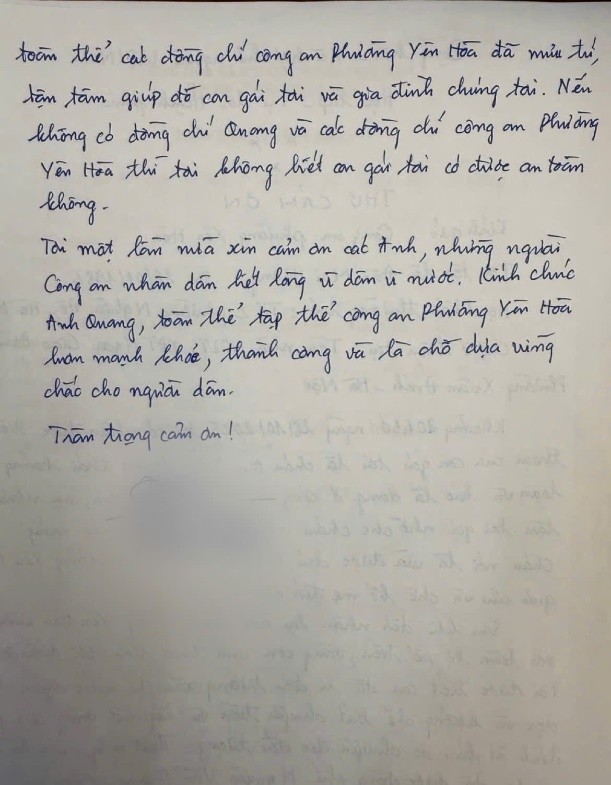 toàn thể các đồng chí công an Phường Yên Hòa đã mưu trí,
tận tâm giúp đỡ con gái tôi và gia đình chúng tôi. Nếu
không có đồng chí Quang và các đồng chí công an Phường
Yên Hòa thì tôi không biết con gái tôi có được an toàn
không.
Tôi một lần nữa xin cảm ơn các Anh, những người
Công an nhân dân hết lòng vì dân vì nước. Kính chúc
Anh Quang, toàn thể tập thể công an Phường Yên Hòa
luôn mạnh khỏe, thành công và là chỗ dựa vững
chắc cho người dân.
Trân trọng cảm ơn!